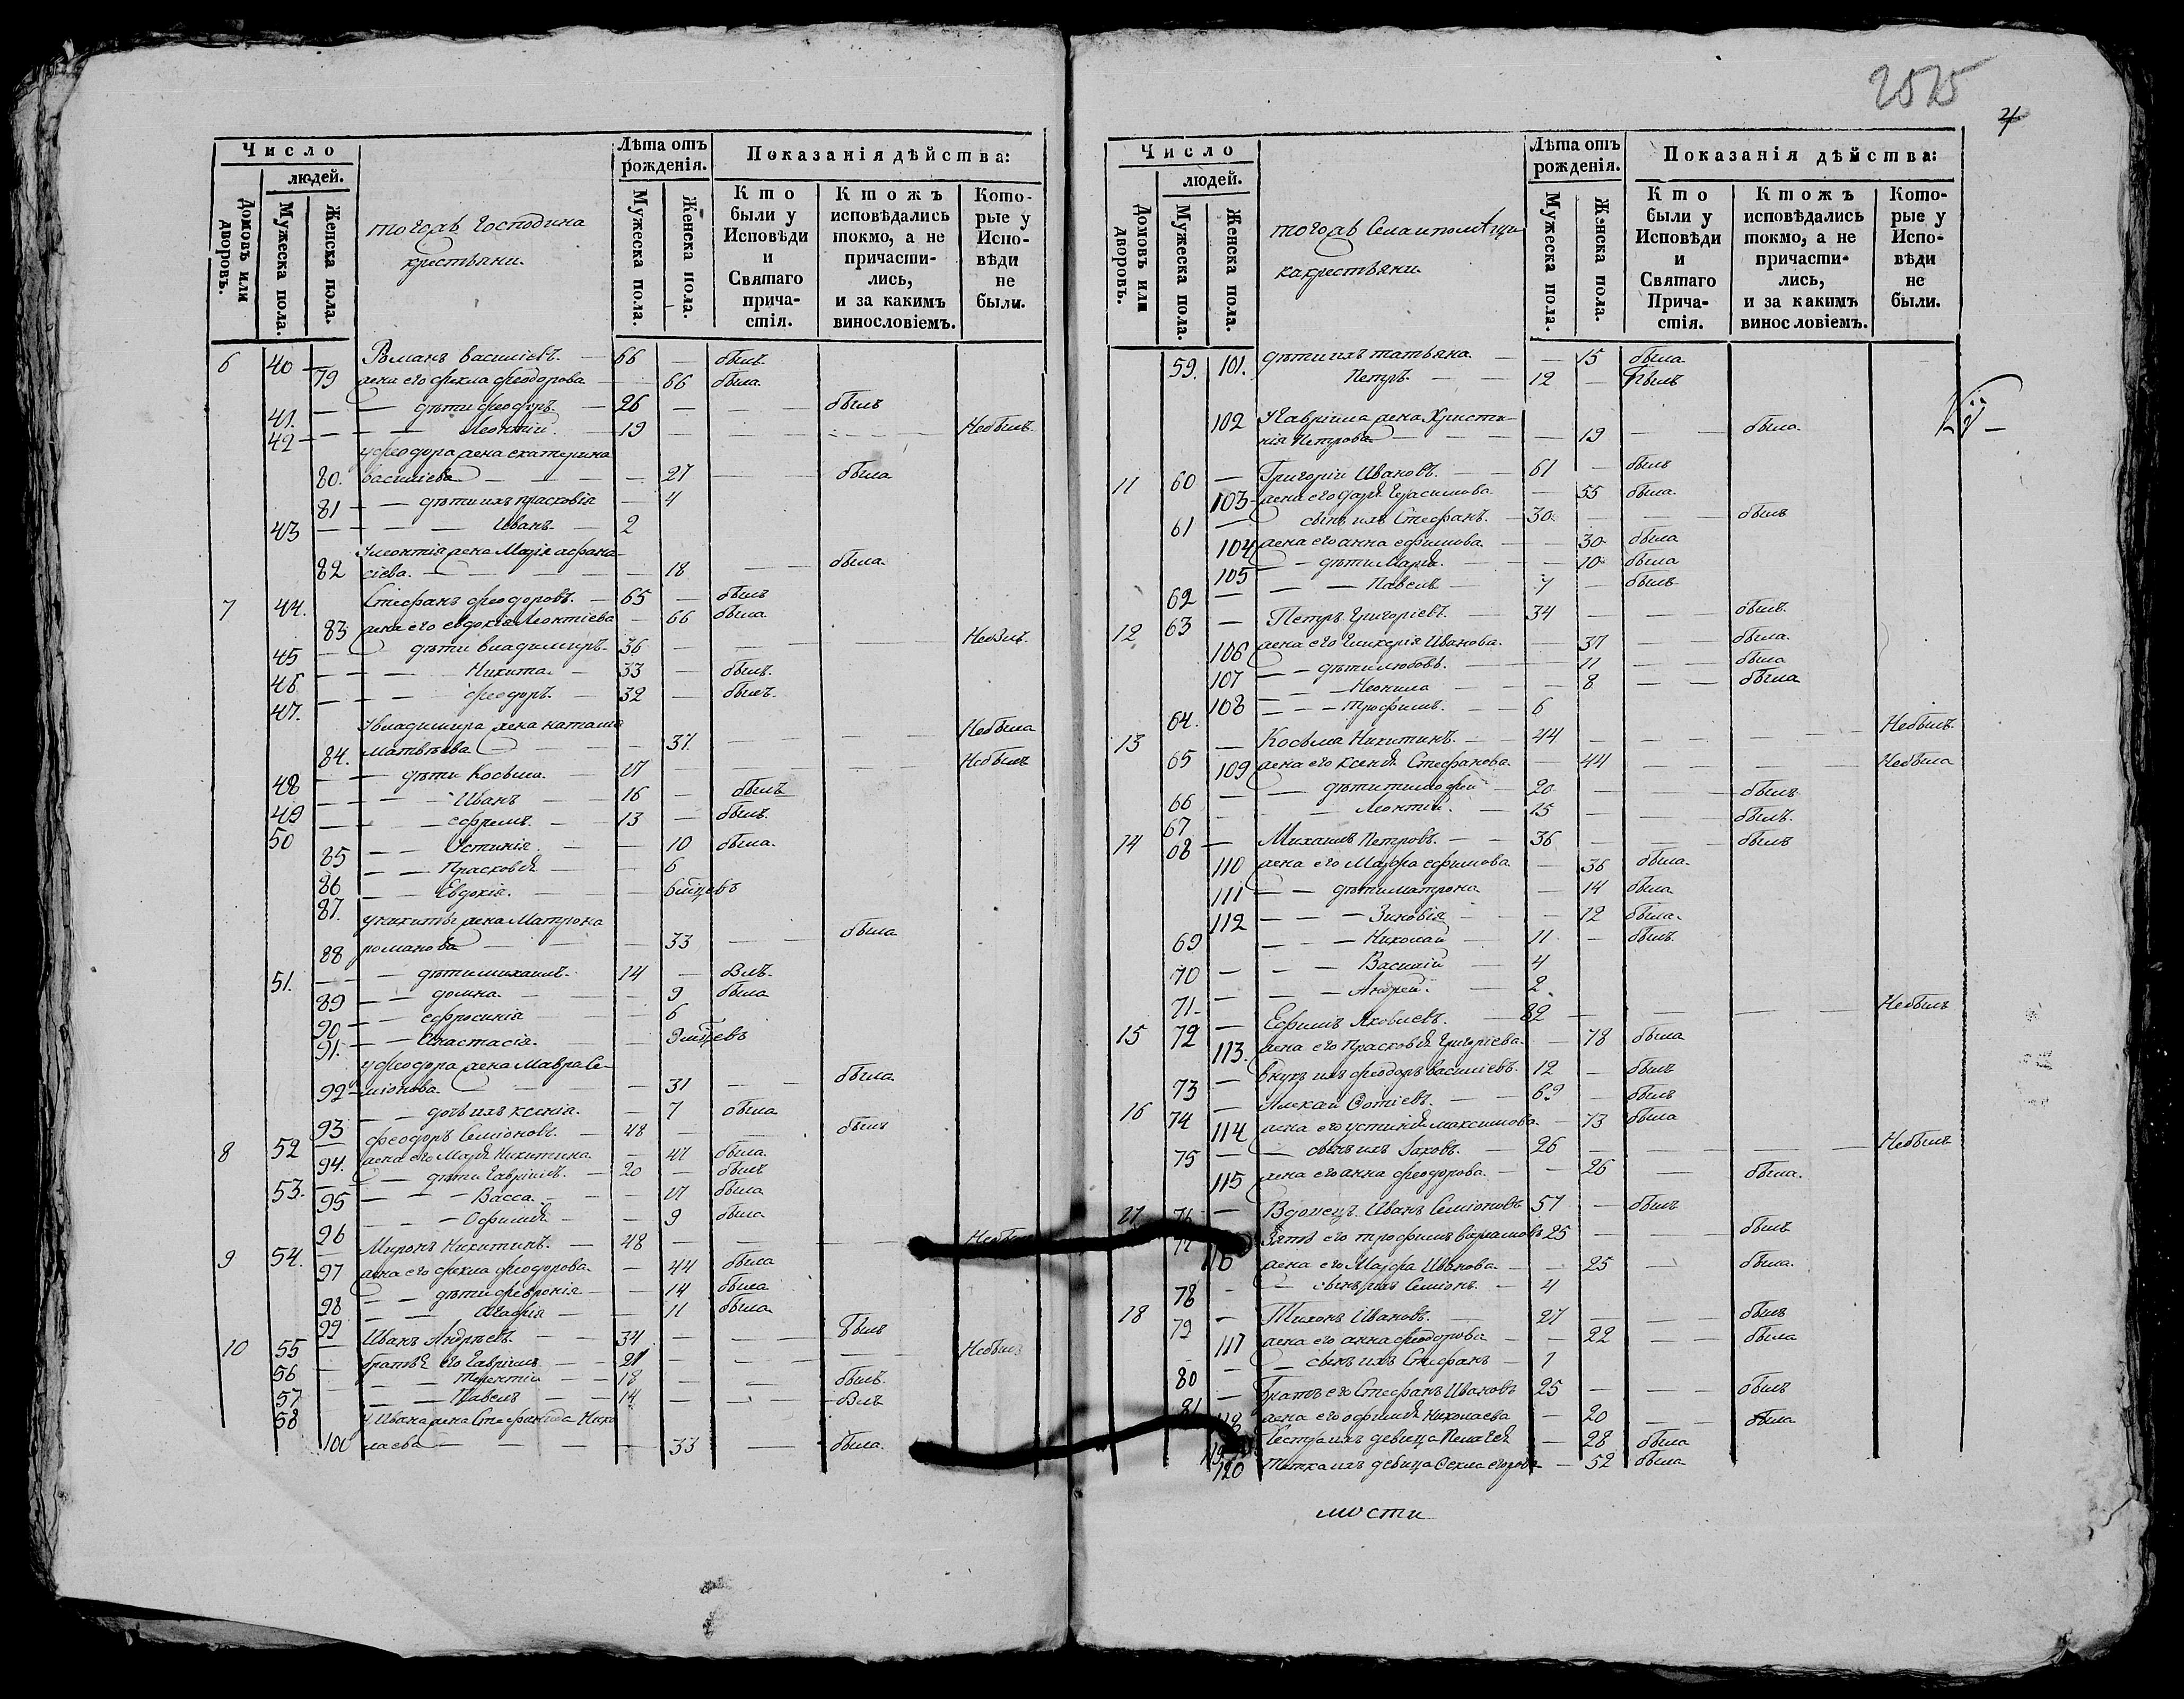 2525
4
Число
людей.
Домовъ или дворовъ.
Мужеска пола.
Женска пола.
тогожъ Господина
крестьяни.
Лѣта отъ рожденія.
Мужеска пола.
Женска пола.
Показанія дѣйства:
Кто были у Исповѣди и Святаго причастія.
Ктожъ исповѣдались токмо, а не причастились, и за какимъ винословіемъ.
Которые у Исповѣди не были.
6 40 — Романъ Василіевъ. — 66 — былъ
79 жена его фекла феодорова — 66 была.
41. — — дѣти феодоръ. — 26 — — — былъ
42 — — — Леонтій. — 19 — — — Небылъ.
уфеодора жена екатерина
80. василіева — — — 27 — — была
81 — — дѣти ихъ прасковіа — 4
43 — — — Иванъ. — 2
Улеонтія жена Марія афана-
82 сіева. — — — 18 — — была.
7 44. Стефанъ феодоровъ. — 65 — былъ
83 жена его евдокіа Леонтіева — 66 была.
45 — дѣти владимиръ. 36 — — — Небылъ.
46 — — — Никита. — 33 — былъ.
47. — — — феодоръ. — 32 — былъ.
Увладимира жена наталіа
84. матвѣева — — — 37. — — — Небыла
48 — — дѣти Косьма. — 17 — — — Небылъ
49 — — — Иванъ — 16 — былъ
50 — — — ефремъ. — 13 — былъ.
85 — — Устиніа. — — 10 была.
86 — — Прасковіа — — 6
87. — — Евдокіа. — — 6 мѣцевъ
уникиты жена Матрона
88 романова — — — 33 — — была
51. — — дѣти михаилъ. 14 — былъ.
89 — — домна. — — 9 была
90 — — ефросиніа — 6
91. — — Анастасіа. — 3 мѣцевъ
уфеодора жена Мавра Се-
92 міонова. — — — 31 — — была.
93 — — дочь ихъ ксеніа. — 7 была
8 52 — феодоръ Семіоновъ. — 48 — — былъ
94. жена его Маріа Никитина. — 47 была.
53. — — дѣти Гавріилъ. — 20 — былъ
95 — — — Васса. — — 17 была
96 — — — Офиміа — — 9 была
9 54. — Миронъ Никитинъ. — 48 — — —
97 жена его фекла феодорова. — 44 была
98 — — дѣти февроніа — — 14 была
99 — — — Агафіа — — 11 была.
10 55 — Иванъ Андреевъ. — — 34 — — — былъ
56 — братья его Гавріилъ — 21 — — — Небылъ
57 — — — Терентій — — 18 — — былъ.
58 — — — Павелъ — — 14. — — — былъ
У Ивана жена Стефанида Нико
100 лаева — — — — 33 — была.
Число
людей.
Домовъ или дворовъ.
Мужеска пола.
Женска пола.
тогожъ
крестьяни.
Лѣта отъ рожденія.
Мужеска пола.
Женска пола.
Показанія дѣйства:
Кто были у Исповѣди и Святаго Причастія.
Ктожъ исповѣдались токмо, а не причастились, и за какимъ винословіемъ.
Которые у Исповѣди не были.
101. дѣти ихъ татьяна. — — 15 была.
59. Петръ. — — 12 — былъ
УГавріила жена Христи-
102 нія Петрова — — — 19 — — была.
11 60 — Григорій Ивановъ. — — 61 — былъ
103 жена его дарья Герасимова. — 55 была.
61 — сынъ ихъ Стефанъ. — 30. — — — былъ
104 жена его анна ефимова. — — 30 была
105 — — дѣти Маріа. — — 10 была
62 — — — Павелъ — 7 — былъ
12 63 — Петръ Григоріевъ. — 34 — — — былъ.
106 жена его Гликеріа Иванова. — 37 — — была.
107 — — дѣти любовь. — — 11 — — была
108 — — — Неонила — — 8 — — была
64. — — — Трофимъ. — — 6
13 65 — Косьма Никитинъ. — — 44 — — — — Небылъ.
109 жена его Ксеніа Стефанова. — 44 — — — — Небыла
66 — — дѣти тимофей — 20. — — — былъ
67 — — — Леонтій. — 15 — — — былъ.
14 68 — Михаилъ Петровъ. — — 36 — — — былъ
110 жена его Марфа ефимова — 36 была.
111 — — дѣти матрона — 14 была
112 — — — Зиновіа — — 12 была.
69 — — — Николай — 11 — былъ.
70 — — — Василій — 4
71. — — — Андрей. — 2.
15 72 — Ефимъ Яковлевъ. — 82 — — — Небылъ
113. жена его Прасковіа Григоріева. — 78 была
73 — Внукъ ихъ феодоръ василіевъ. 12 — былъ
16 74 — Фотіевъ. — — 69 — былъ
114 жена его устиніа максимова. — 73 была
75 — — сынъ ихъ Іаковъ. — 26 — — — — Небылъ
115 жена его анна феодорова. — — 26 — была.
17 76 — Вдовецъ Иванъ Семіоновъ 57 — былъ
77 Зять его трофимъ 25 — — — былъ
116 жена его Марфа Иванова — — 25 — была.
78 — — сынъ ихъ Семіонъ. — 4
18 79 — Тихонъ Ивановъ. — 27 — — — былъ
117 жена его анна феодорова — — 22 — — была
80 — — сынъ ихъ Стефанъ — 1
81 — Братъ его Стефанъ Ивановъ 25 — — — былъ
118 жена его офиміа Николаева — 20 — — была
119 Сестра ихъ девица Пелагея — 28 была
120 Тетка ихъ девица Фекла егорова — 52 была
мости